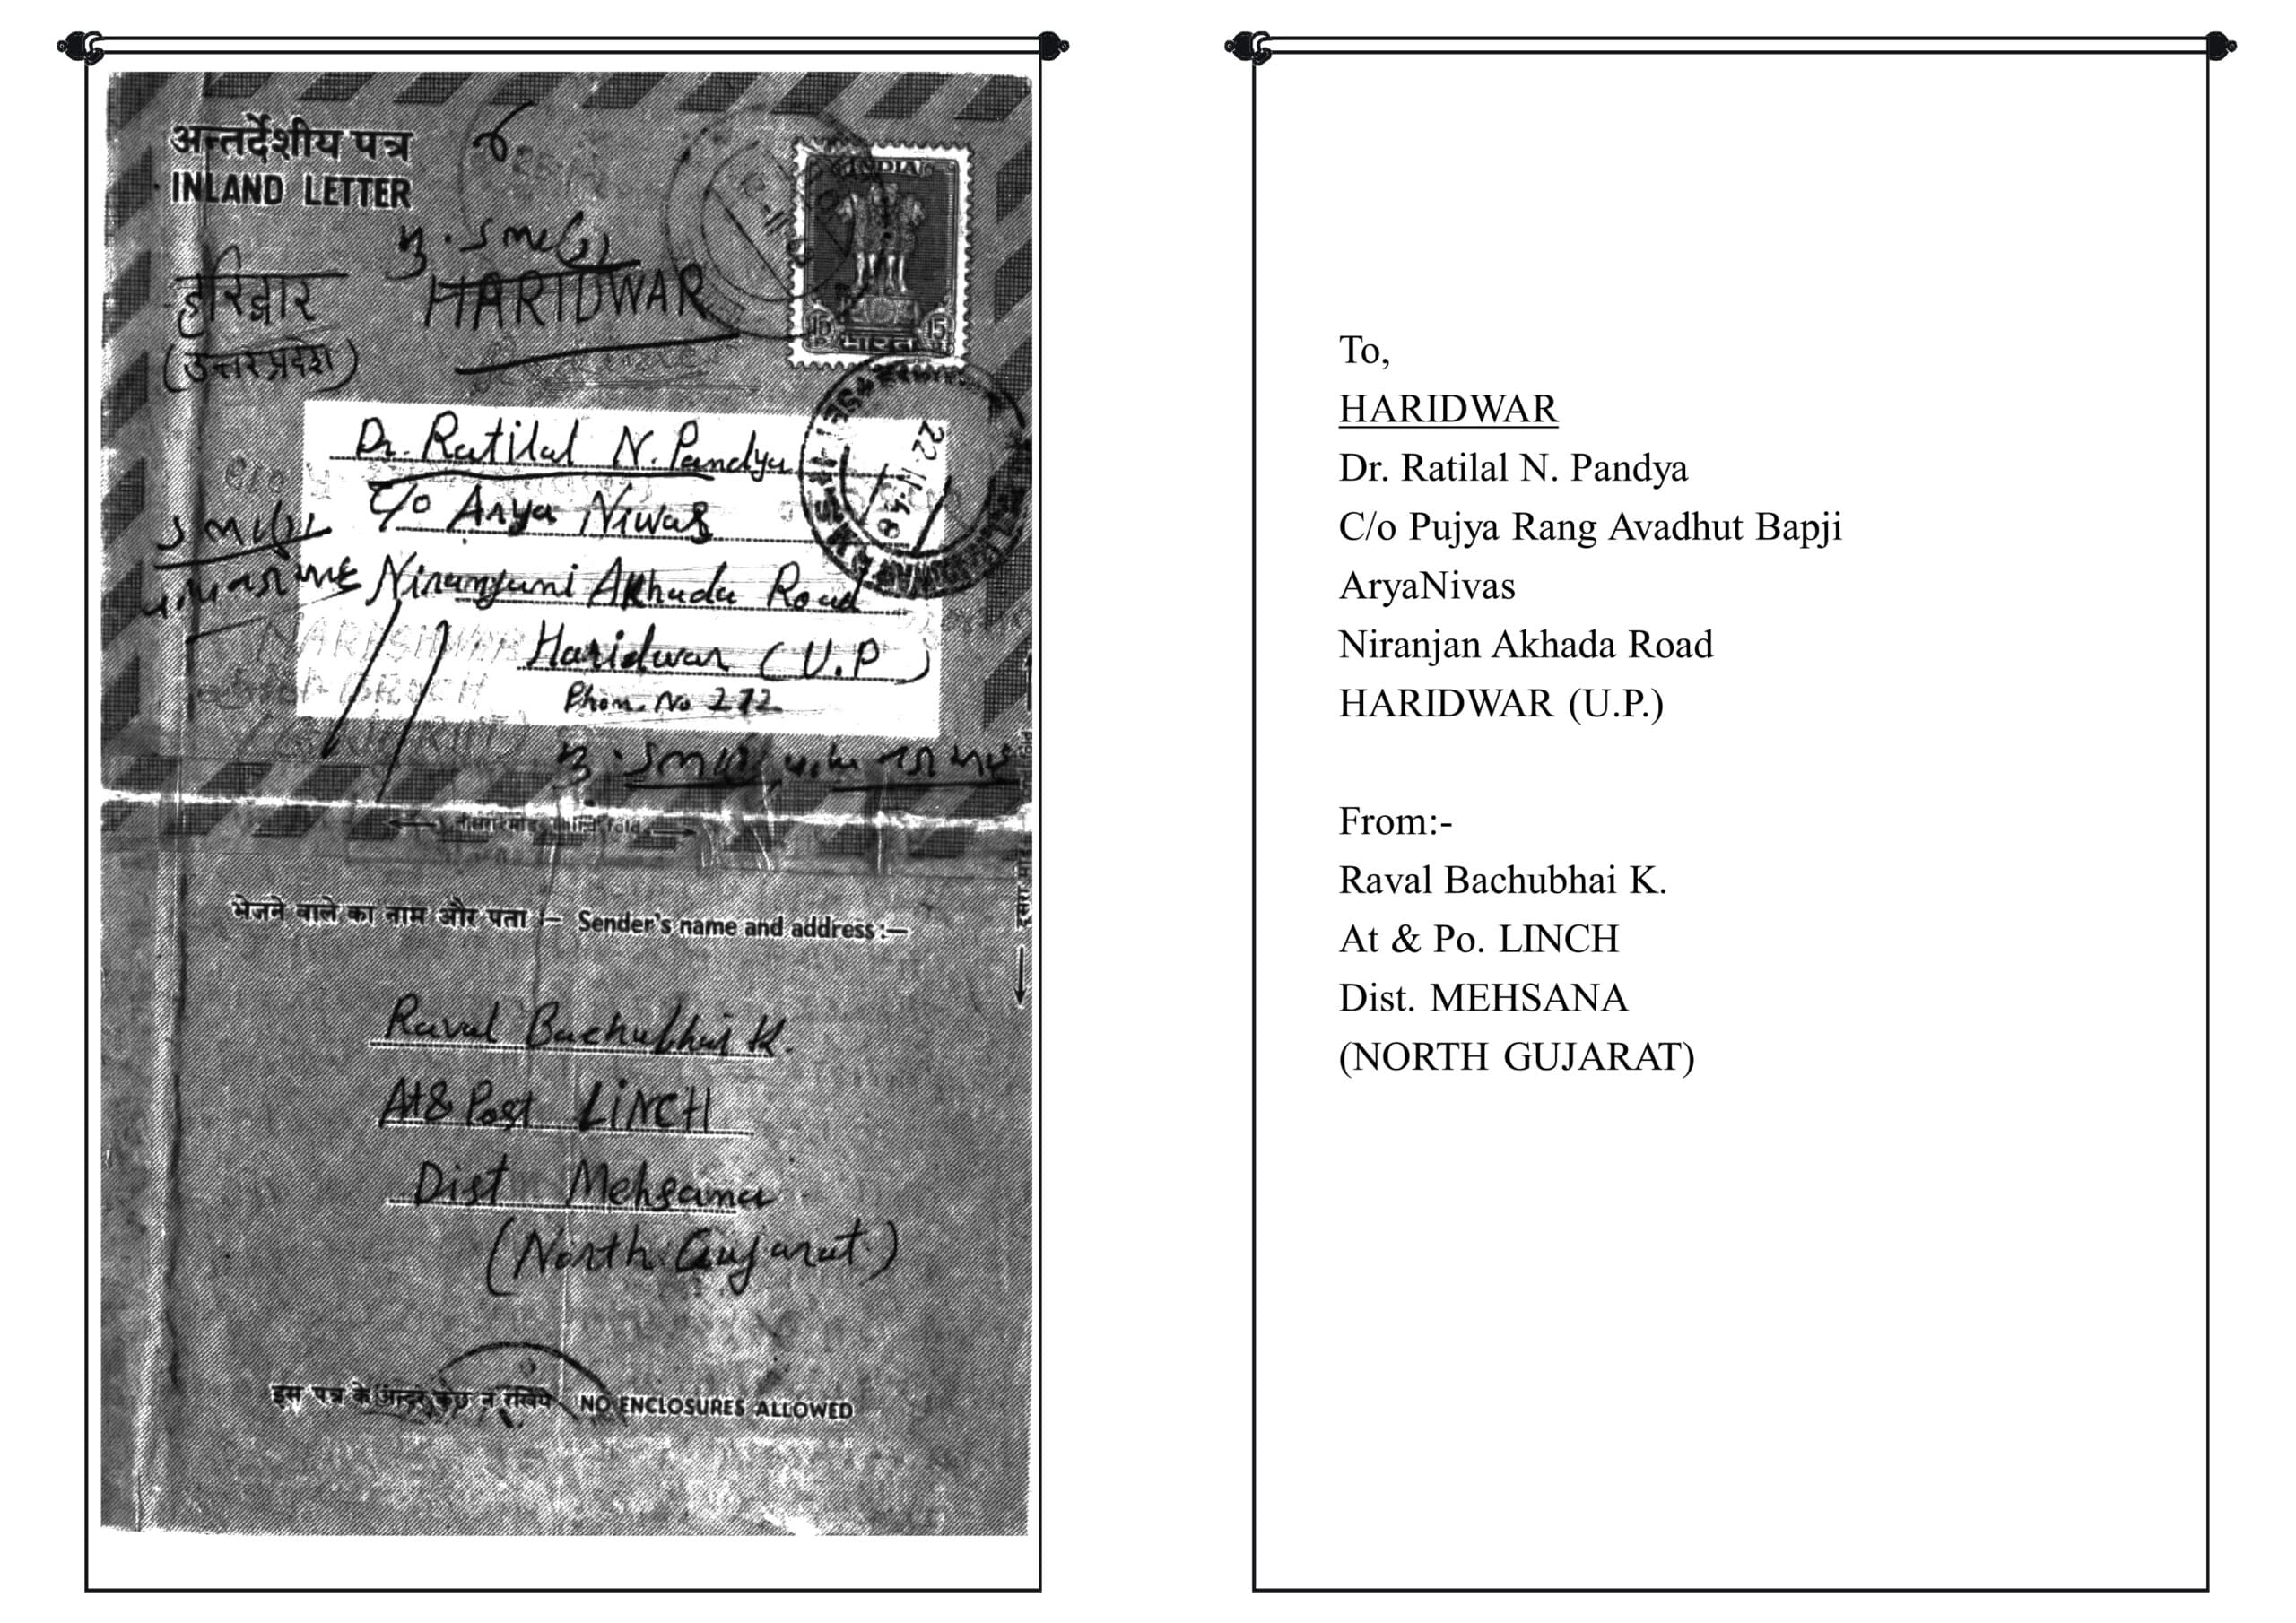 अन्तर्देशीय पत्र
INLAND LETTER
INDIA
15 15
भारत
हरिद्वार
HARIDWAR
(उत्तरप्रदेश)
Dr. Ratilal N. Pandya
C/o Arya Niwas
Niranjani Akhada Road
Haridwar (U.P)
Phon. No 272
भेजने वाले का नाम और पता :— Sender's name and address :—
Raval Bachubhai K.
At & Post LiNCH
Dist Mehsana
(North Gujarat)
इस पत्र के अन्दर कुछ न रखिये NO ENCLOSURES ALLOWED
To,
HARIDWAR
Dr. Ratilal N. Pandya
C/o Pujya Rang Avadhut Bapji
AryaNivas
Niranjan Akhada Road
HARIDWAR (U.P.)
From:-
Raval Bachubhai K.
At & Po. LINCH
Dist. MEHSANA
(NORTH GUJARAT)